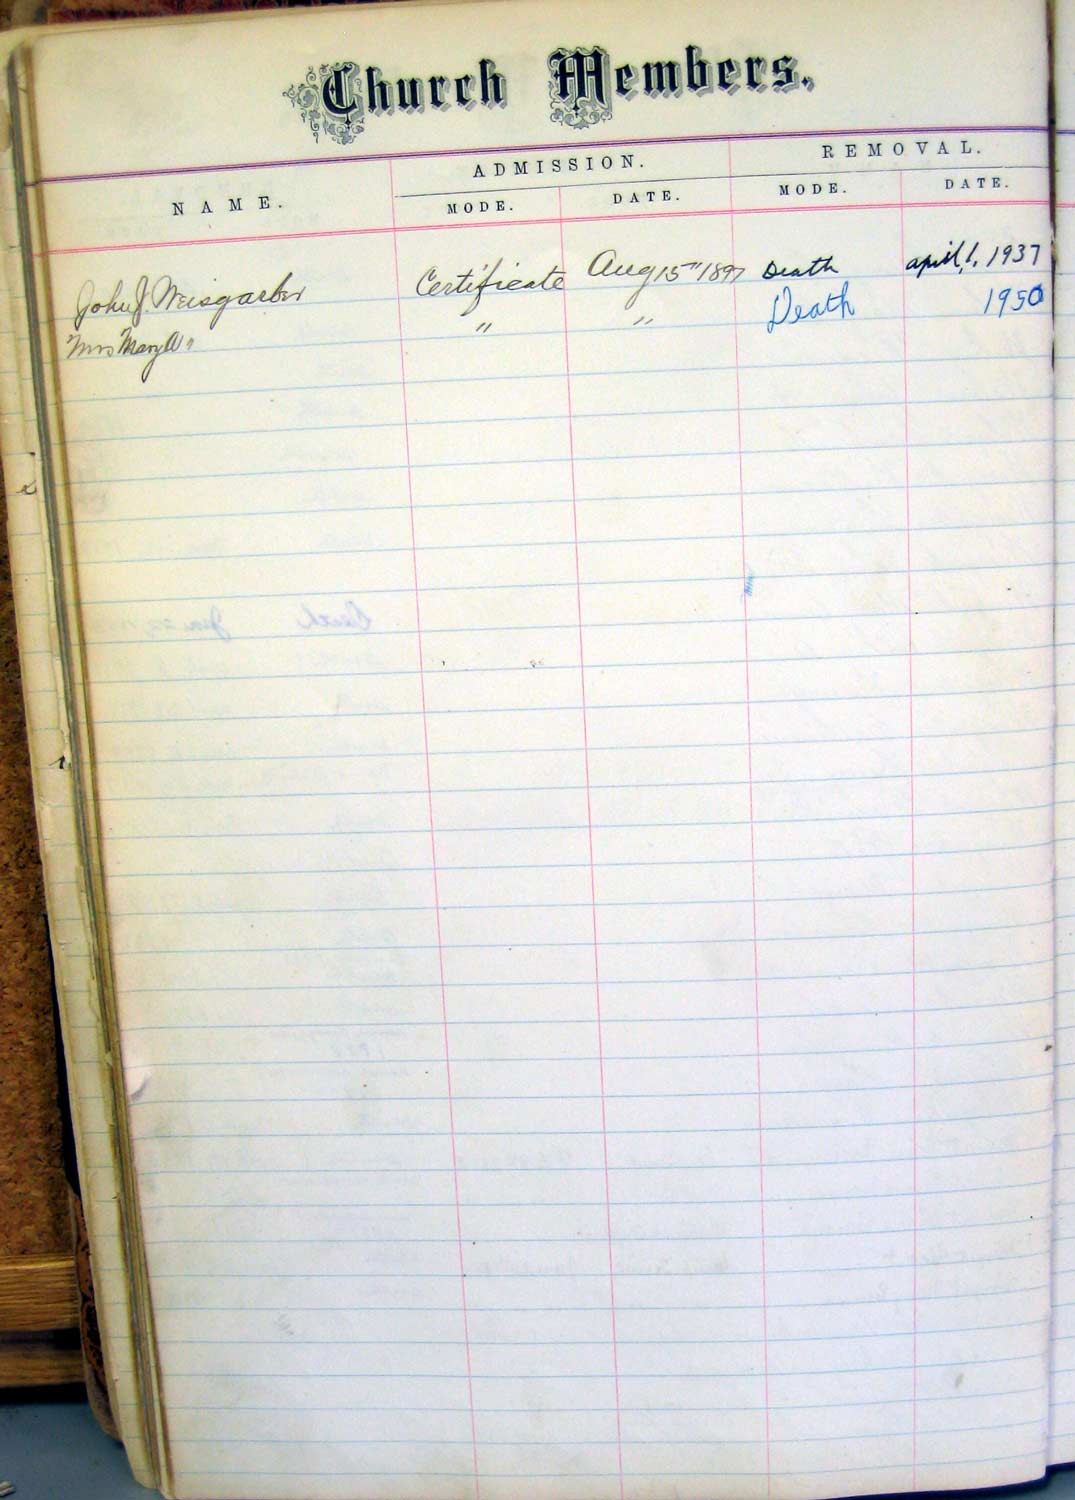 Church Members.
NAME.
ADMISSION.
REMOVAL.
MODE.
DATE.
MODE.
DATE.
John J. Weisgarber Certificate Aug 15" 1897 Death april, 1, 1937
Mrs Mary A " " " Death 1950